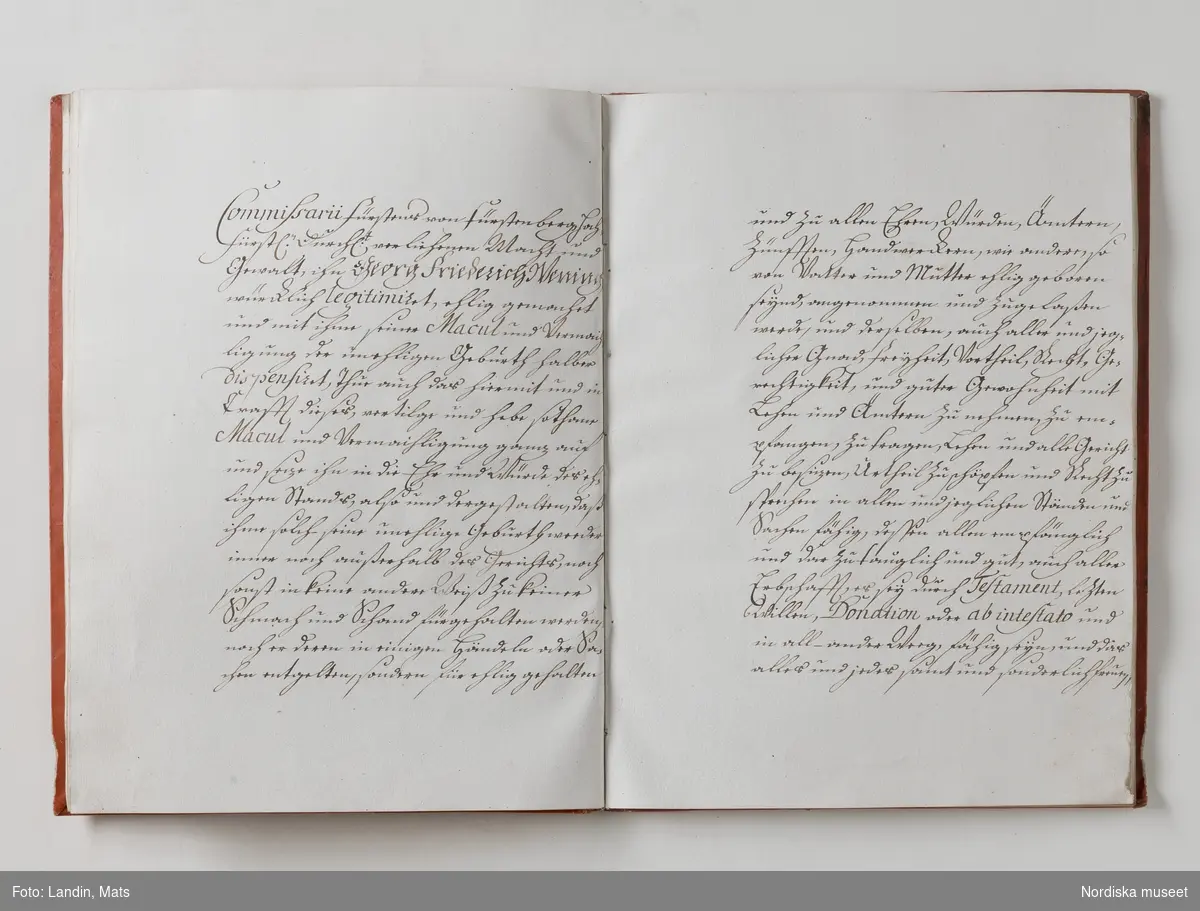 Commissarii Fürstens von Fürstenberg Hoch
Fürstl.r Durchl.t verliehenen Macht und
Gewalt, ihn Georg Friederich Wening
würcklich legitimiret, ehlig gemachet
und mit ihme seiner Macul und Vermaih
ligung der unehligen Gebürth halber
dispensiret, Thue auch das hiermit und in
Crafft dieses, vertilge und hebe sothane
Macul und Vermaihligung gantz auf
und seze ihn in die Ehr und Würde des eh,
ligen Stands, also und dergestalten, daß
ihme solch seine unehlige Gebürth weeder
inner noch außerhalb des Gerichts, noch
sonst in keine andere Weiß zu keiner
Schmach und Schand fürgehalten werden,
noch er deren in einigen Händeln oder Sa,
chen entgelten, sondern für ehlig gehalten
und zu allen Ehren, Würden, Ämtern,
Zünfften, Handwerckern, wie andere, so
von Vatter und Mutter ehlig geboren
seynd, angenommen und zugelaßen
werde, und derselben, auch aller und jeg,
licher Gnad, Freyheit, Vortheil, Recht, Ge,
rechtigkeit, und guter Gewohnheit mit
Lehen und Ämtern zu nehmen, zu em,
pfangen, zu tragen, Lehen und alle Gericht
zu besizen, Urtheil zu schöpfen und Recht zu
sprechen in allen und jeglichen Ständen und
Sachen fähig, dessen allen empfänglich
und dar zu tauglich und gut, auch aller
Erbschafft, es sey durch Testament, lezten
Willen, Donation oder ab intestato und
in all-ander Weeg, fähig seyn, und das
alles und jedes samt und sonderlich
Foto: Landin, Mats
Nordiska museet